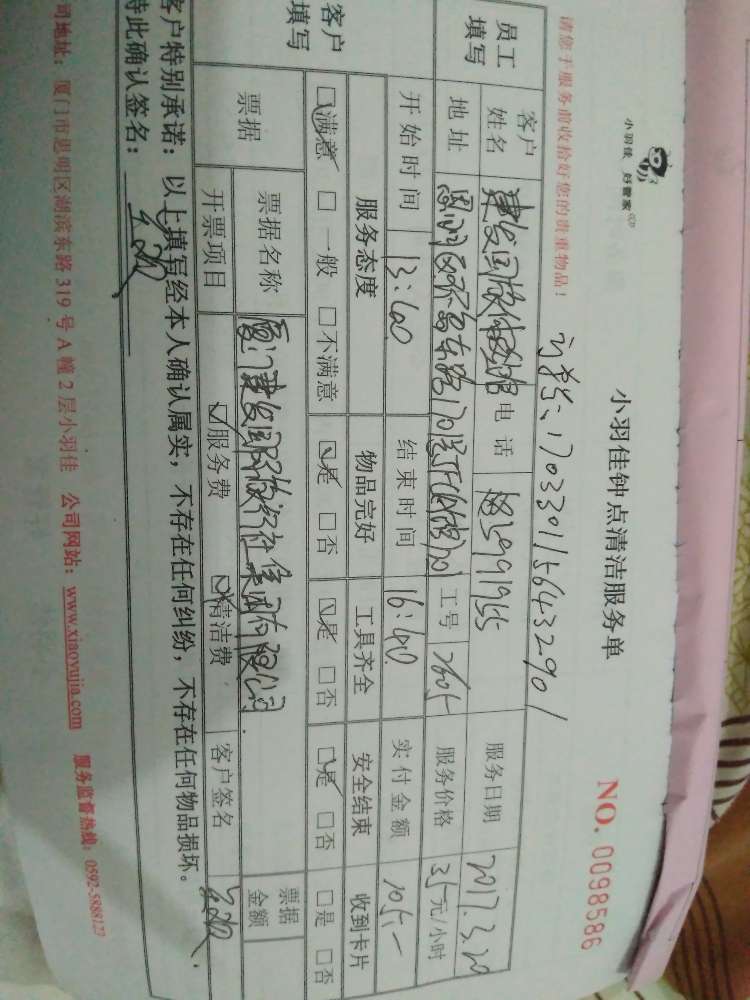 小羽佳 好管家
小羽佳钟点清洁服务单
NO. 0098586
请您于服务前收拾好您的贵重物品！
1703301156432901
员工填写 客户姓名 建发国际 电话 服务日期 2017.3.20
地址 工号 2605 服务价格 35元/小时
开始时间 13:40 结束时间 16:40 实付金额 105.-
客户填写 服务态度 物品完好 工具齐全 安全结束 收到卡片
☑满意 □一般 □不满意 ☑是 □否 ☑是 □否 ☑是 □否 □是 □否
票据 票据名称 厦门建发国际旅行社集团有限公司 票据金额
开票项目 ☑服务费 ☑清洁费 客户签名
客户特别承诺：以上填写经本人确认属实，不存在任何纠纷，不存在任何物品损坏。
特此确认签名：
司地址：厦门市思明区湖滨东路319号A幢2层小羽佳 公司网站：www.xiaoyujia.com 服务监督热线：0592-5888127